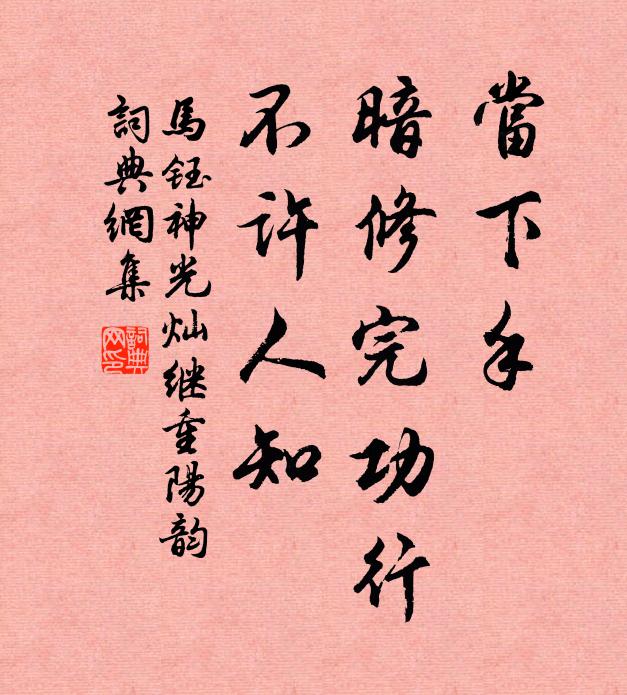 當下手
暗修完功行
不许人知
馬鈺神光灿继重陽韵
詞典網集
詞典
网印